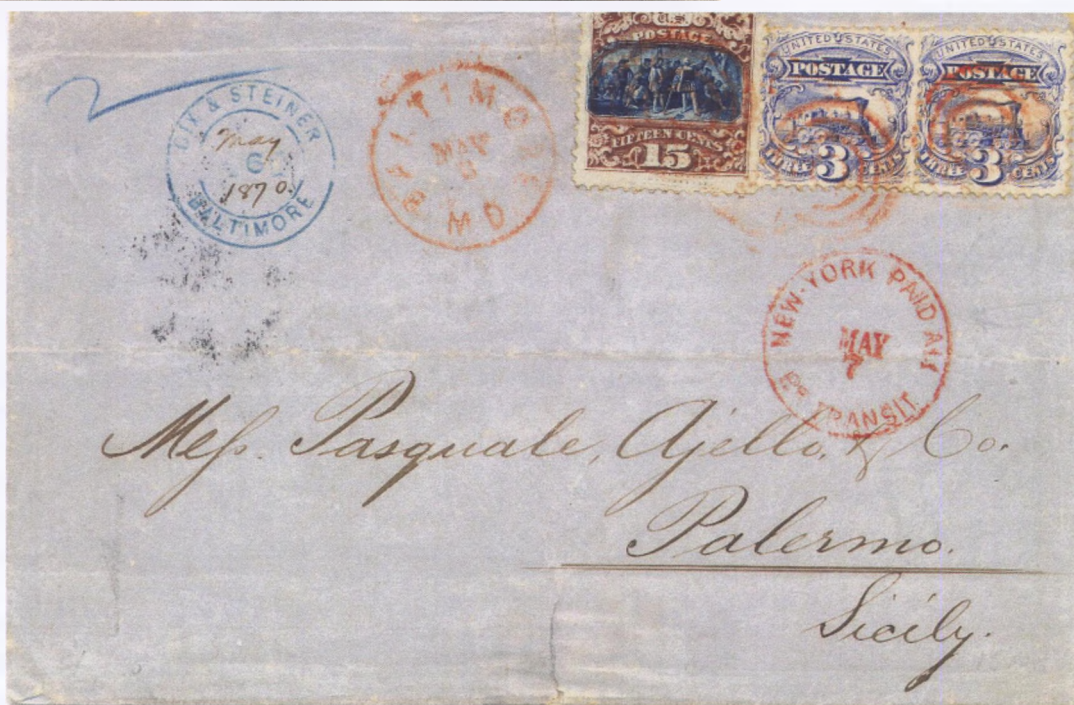 2
DIX & STEINER
May
6
1870.
BALTIMORE
BALTIMORE
MAY
6
MD
U.S.
POSTAGE
FIFTEEN CENTS
15
UNITED STATES
POSTAGE
THREE 3 CENTS
UNITED STATES
POSTAGE
THREE 3 CENTS
NEW-YORK PAID ALL
MAY
7
Br TRANSIT
Mess. Pasquale, Ajello, & Co.
Palermo.
Sicily.